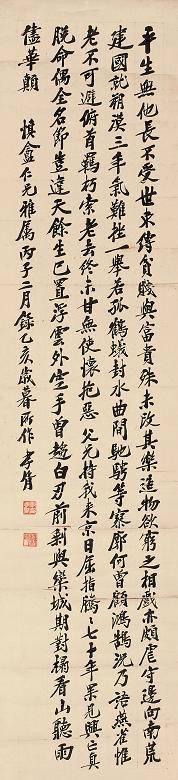 平生與長不受世束縛貧賤與富貴殊未改其樂造物欲窮之相戲亦頗虐守邊向南荒
建國就朔漠三年氣難挫一舉若孤鶴蟻封水曲間馳騁等寥廓何曾顧鴻鵠況乃語燕雀惟
老不可避俯首羈朽索老去終未甘無使懷抱惡 父兄持我來京日屈指七十年果見興亡真
脫命偶全名節豈違天餘生已置浮雲外空手曾趨白刃前判與欒城期對榻看山聽雨
儘華顛 慎盦仁兄雅屬丙子二月錄乙亥歲暮所作 孝胥